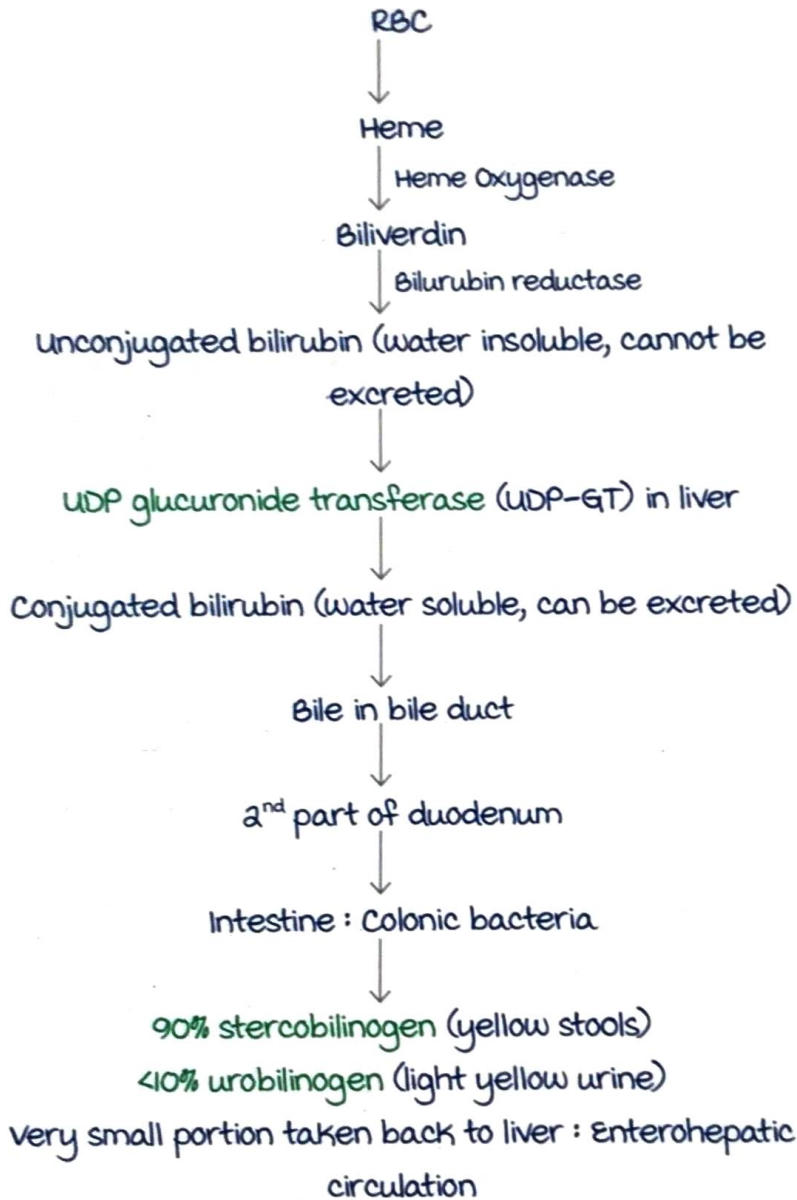 RBC
Heme
Heme Oxygenase
Biliverdin
Bilurubin reductase
unconjugated bilirubin (water insoluble, cannot be
excreted)
UDP glucuronide transferase (UDP-GT) in liver
Conjugated bilirubin (water soluble, can be excreted)
Bile in bile duct
2nd part of duodenum
Intestine : Colonic bacteria
90% stercobilinogen (yellow stools)
<10% urobilinogen (light yellow urine)
very small portion taken back to liver : Enterohepatic
circulation